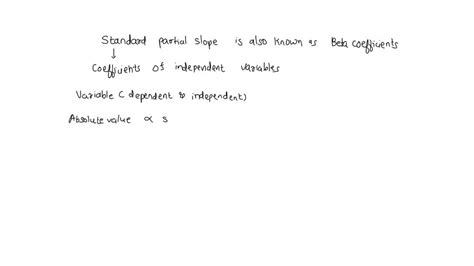 Standard partial slope is also known as Beta coefficients
↓
Coefficients of independent variables
Variable ( dependent & independent)
Absolute value ∝ s